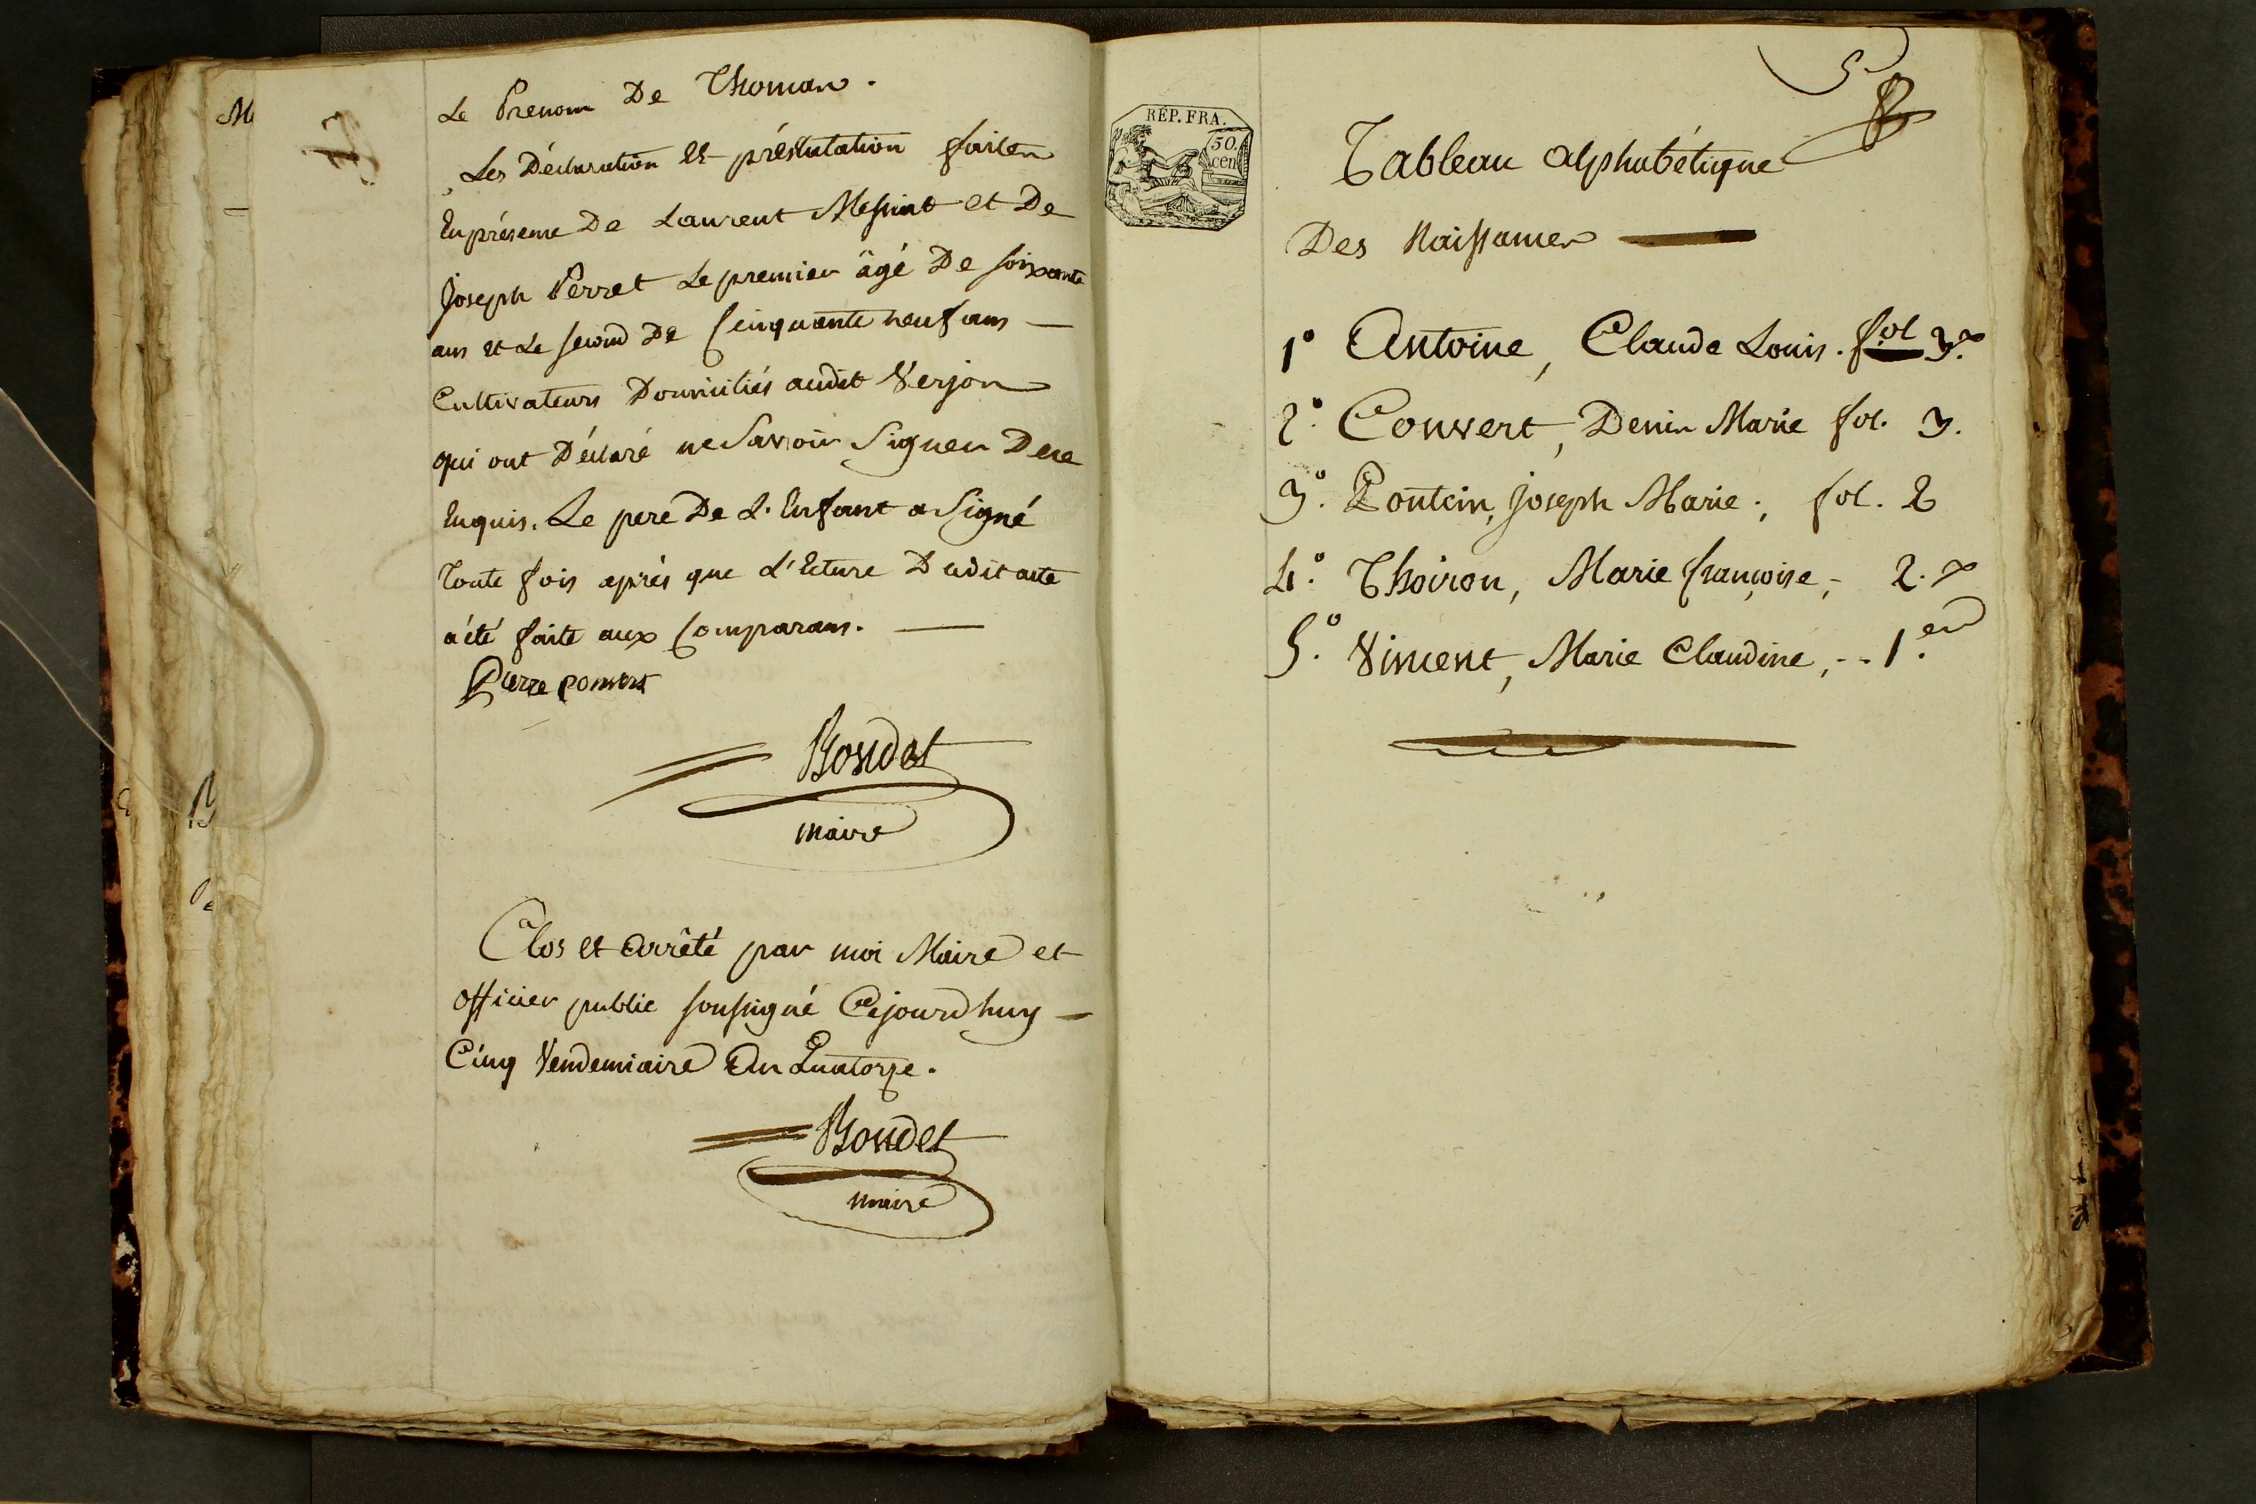 Le Prenom De Thomas.
Les Déclaration et présentation faites
En présence De Laurent Messiat et De
Joseph Perret Le premier âgé De soixante
ans et Le second De Cinquante neuf ans —
Cultivateurs Domiciliés audit Verjon
qui ont Déclaré ne Savoir Signer De ce
Enquis. Le pere De L'Enfant a Signé
toute fois après que L'Ecture Dudit acte
a été faite aux Comparans. —
Pierre convert
Bondet
maire
Clos et arrêté par moi Maire et
officier public soussigné Cejourdhuy —
Cinq Vendemiaire An Quatorze.
Bondet
maire
RÉP. FRA.
50.
cen
5
Tableau alphabétique
Des Naissances —
1° Antoine, Claude Louis. fol 3.
2° Convert, Denis Marie fol. 3.
3° Pontcin, Joseph Marie; fol. 2
4° Thoiron, Marie françoise; 2.
5° Vincent, Marie Claudine, -- 1.er